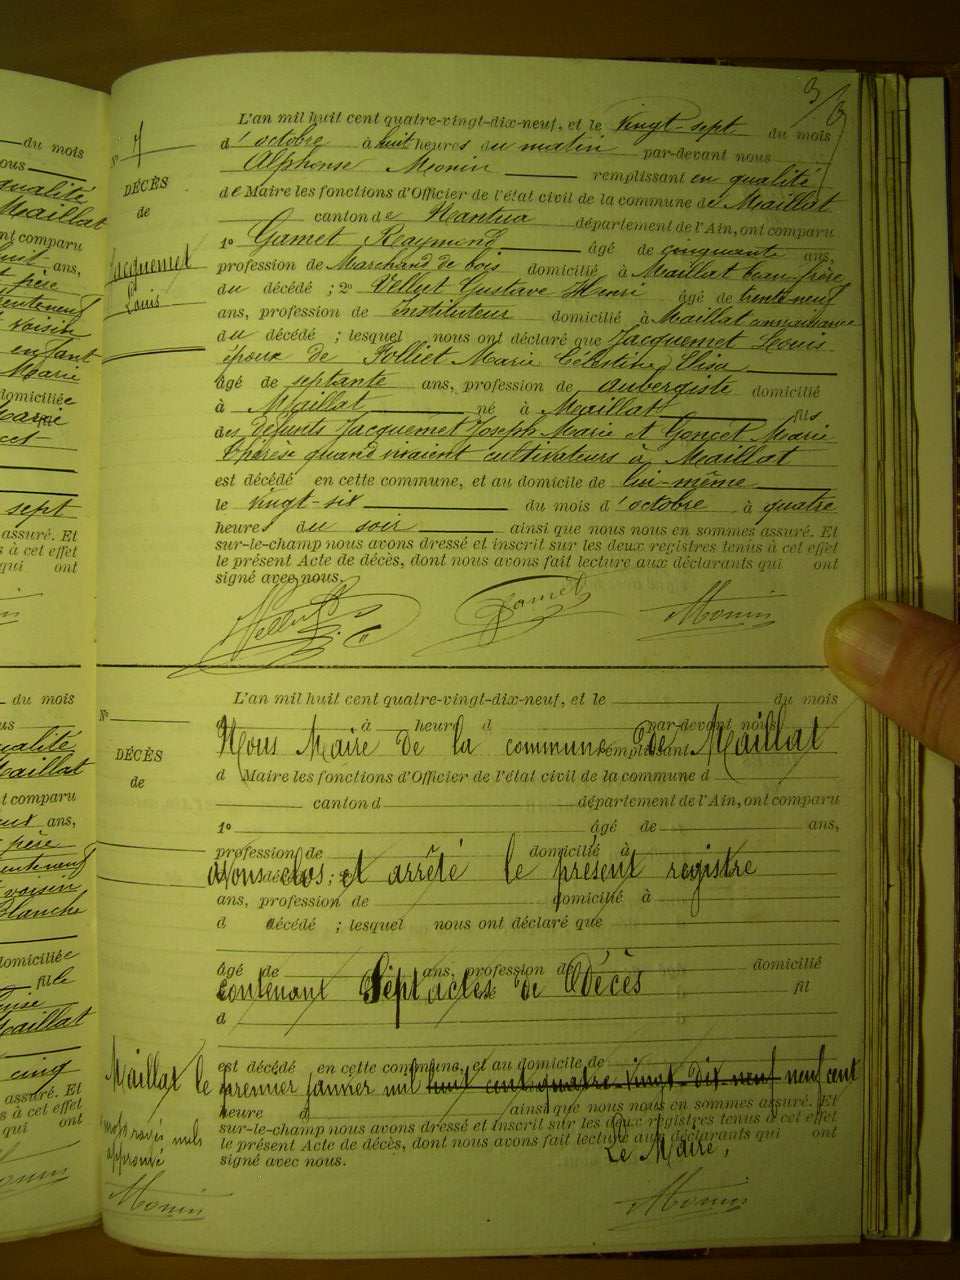 du mois
ous
qualité
Maillat
nt comparu
huit ans,
frère
trenteneuf
voisin
enfant
Marie
domiciliée
sept
assuré. Et
s à cet effet
qui ont
du mois
us
ualité
Maillat
comparu
eux ans,
père
trenteneuf
voisin
Blanche
domiciliée
fille
Maillat
cinq
assuré. Et
s à cet effet
qui ont
Monin
3/
N° 7
DÉCÈS
de
Jacquemet
Louis
L'an mil huit cent quatre-vingt-dix-neuf, et le Vingt-sept du mois
d'octobre à huit heures du matin par-devant nous
Alphonse Monin remplissant en qualité
de Maire les fonctions d'Officier de l'état civil de la commune de Maillat
canton de Nantua département de l'Ain, ont comparu
1° Gamet Reaymond âgé de cinquante ans,
profession de Marchand de bois domicilié à Maillat beau-frère
du décédé ; 2° Velluet Gustave Henri âgé de trente neuf
ans, profession de Instituteur domicilié à Maillat connaissance
du décédé ; lesquel nous ont déclaré que Jacquemet Louis
époux de Folliet Marie Célestine Elisa
âgé de septante ans, profession de aubergiste domicilié
à Maillat né à Maillat fils
des défunts Jacquemet Joseph Marie et Goncet Marie
Thérèse quand vivaient cultivateurs à Maillat
est décédé en cette commune, et au domicile de lui-même
le vingt-six du mois d'octobre à quatre
heures du soir ainsi que nous nous en sommes assuré. Et
sur-le-champ nous avons dressé et inscrit sur les deux registres tenus à cet effet
le présent Acte de décès, dont nous avons fait lecture aux déclarants qui ont
signé avec nous.
Gamet Monin
N°
DÉCÈS
de
L'an mil huit cent quatre-vingt-dix-neuf, et le du mois
d à heure d par-devant nous
Nous Maire de la commune de Maillat
remplissant
d Maire les fonctions d'Officier de l'état civil de la commune d
canton d département de l'Ain, ont comparu
1° âgé de ans,
profession de domicilié à
avons clos et arrêté le présent registre
d décédé ; 2°
ans, profession de domicilié à
d décédé ; lesquel nous ont déclaré que
âgé de ans, profession de domicilié
contenant Sept actes de Décès
fil
d
est décédé en cette commune, et au domicile de
Maillat le premier janvier mil huit cent quatre-vingt-dix-neuf neuf cent
heure d ainsi que nous nous en sommes assuré. Et
sur-le-champ nous avons dressé et inscrit sur les deux registres tenus à cet effet
mots rayés nuls
le présent Acte de décès, dont nous avons fait lecture aux déclarants qui ont
approuvé
signé avec nous.
Le Maire,
Monin
Monin